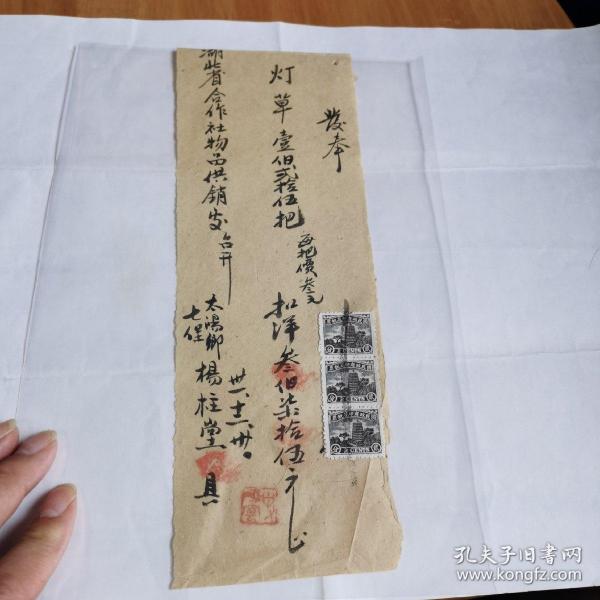 發奉
灯草壹佰貳拾伍把 每把價叁元 扣洋叁佰柒拾伍元正
湖北省合作社物品供銷处台升
卅一、十二、卅日
太陽鄉
七保
楊柱堂 具
2 CENTS
2 CENTS
2 CENTS
孔夫子旧书网
www.kongfz.com